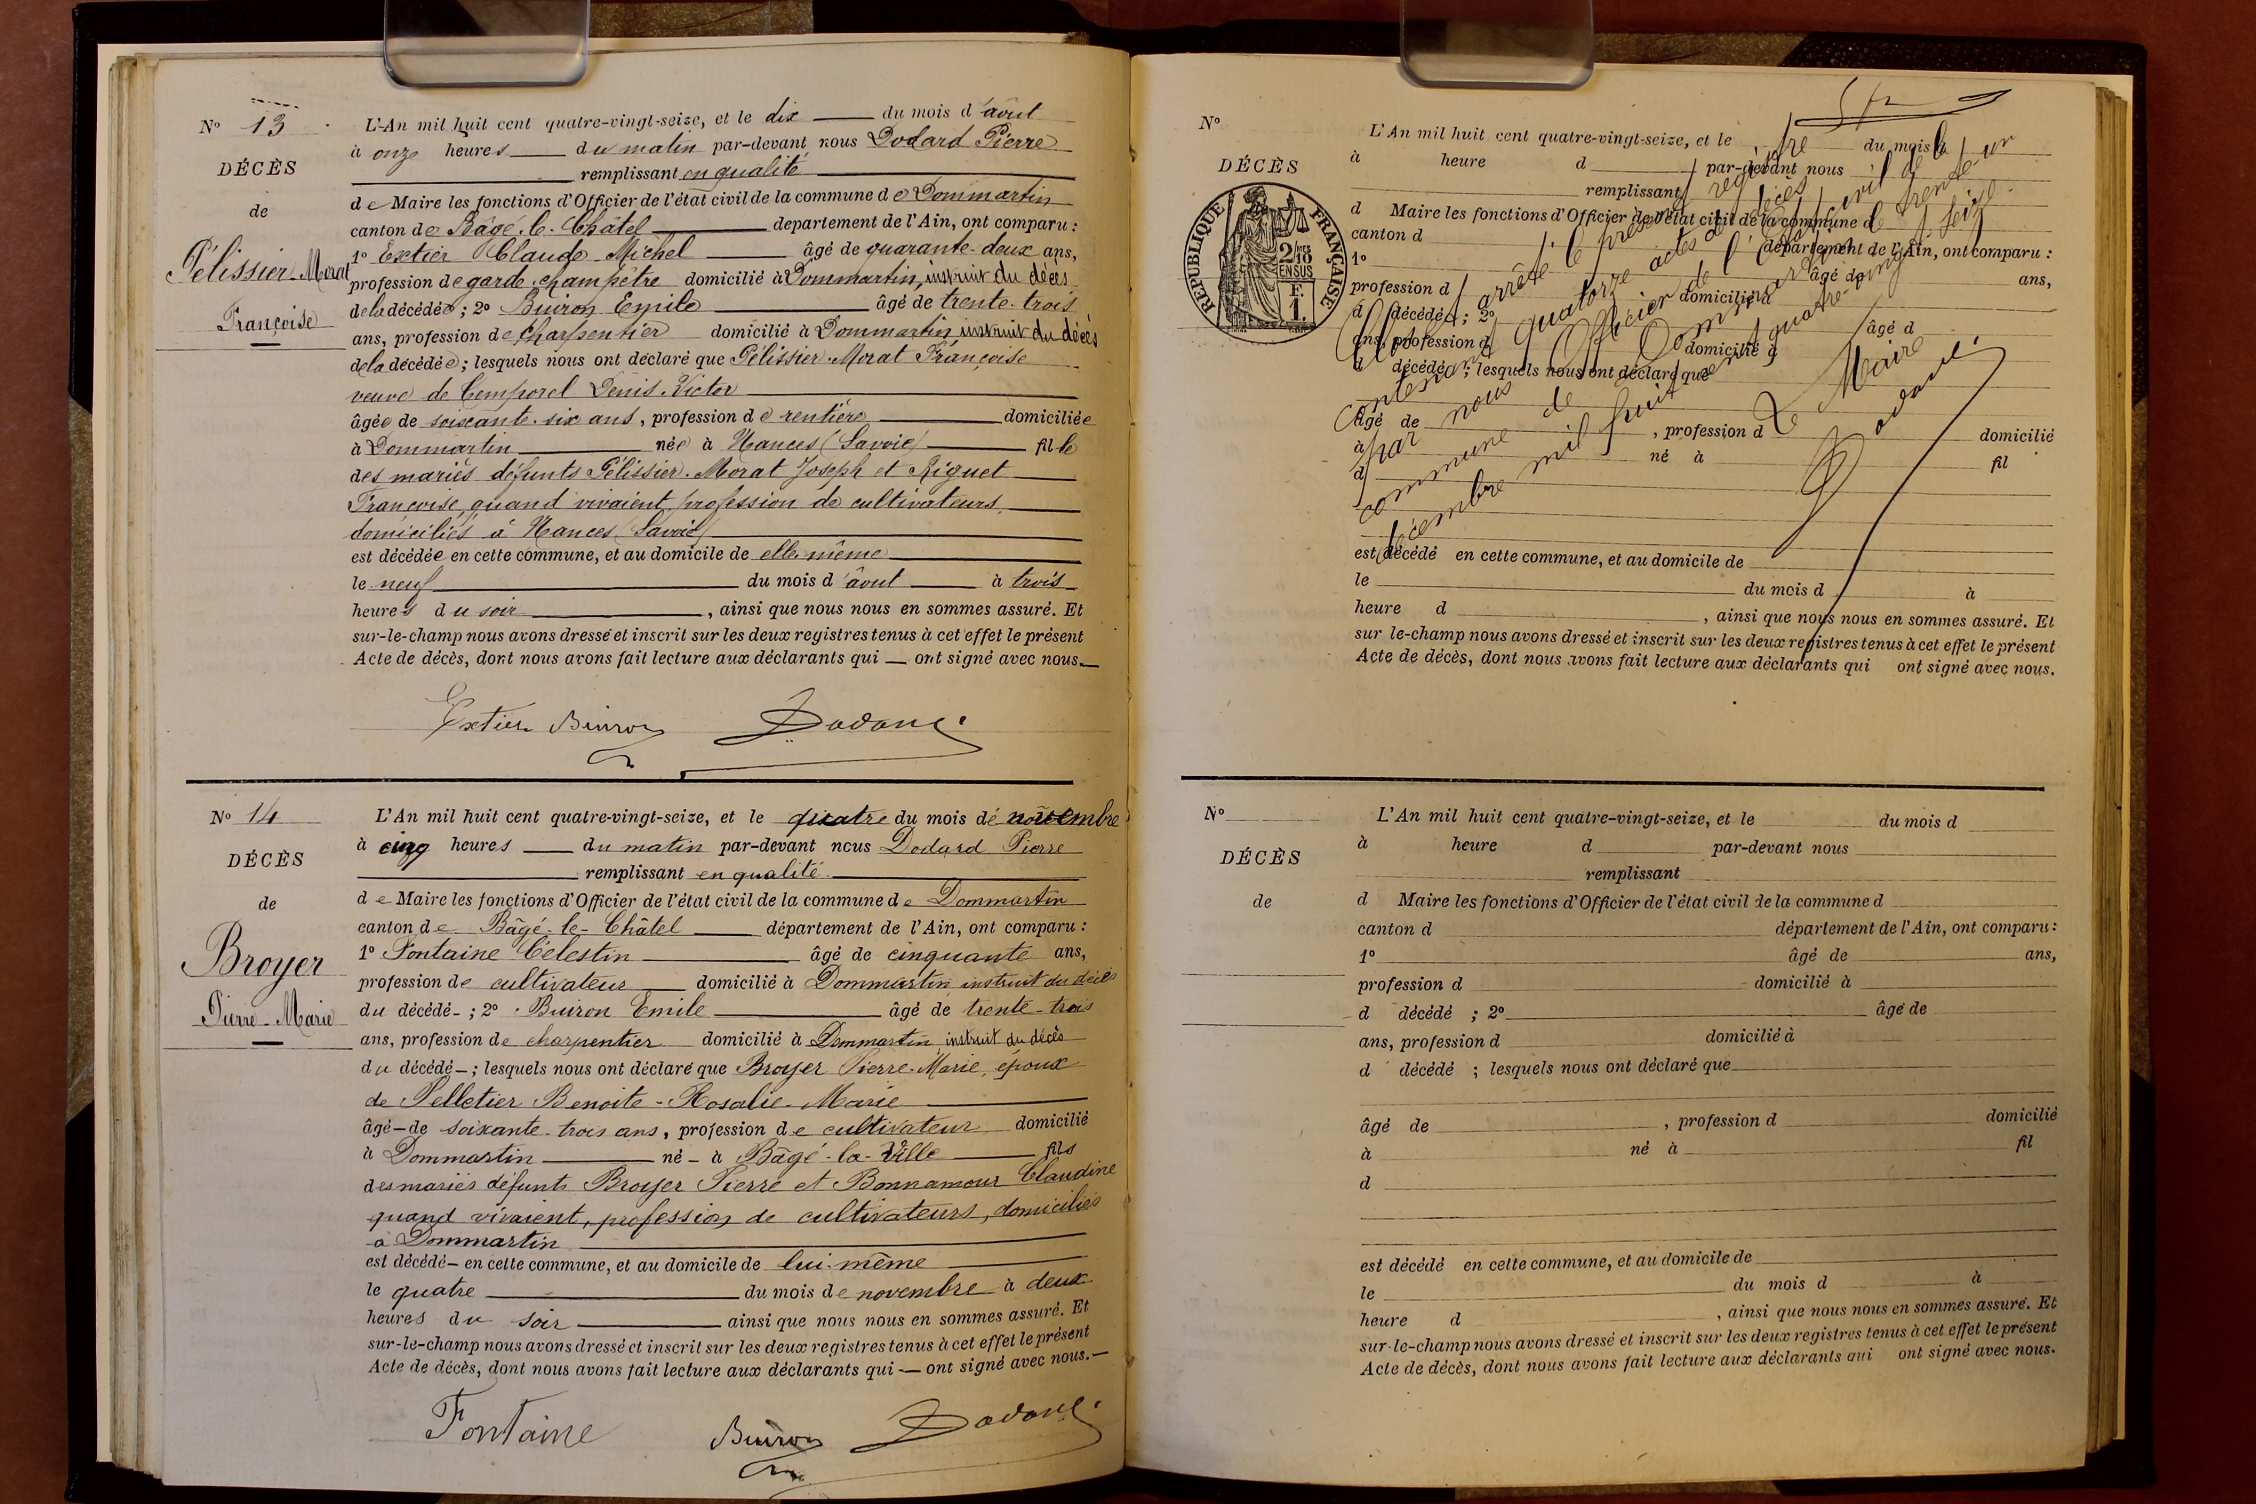 N° 13
DÉCÈS
de
Pélissier-Morat
Françoise
L'An mil huit cent quatre-vingt-seize, et le dix du mois d'août
à onze heures du matin par-devant nous Dodard Pierre
remplissant en qualité
de Maire les fonctions d'Officier de l'état civil de la commune de Dommartin
canton de Bâgé-le-Châtel departement de l'Ain, ont comparu :
1° Extier Claude Michel âgé de quarante-deux ans,
profession de garde champêtre domicilié à Dommartin, instruit du décès
de la décédée ; 2° Buiron Emile âgé de trente-trois
ans, profession de charpentier domicilié à Dommartin instruit du décès
de la décédée ; lesquels nous ont déclaré que Pélissier-Morat Françoise
veuve de Temporel Denis-Victor
âgée de soixante-six ans, profession de rentière domiciliée
à Dommartin née à Nances (Savoie) fille
des mariés défunts Pélissier-Morat Joseph et Riguet
Françoise, quand vivaient, profession de cultivateurs,
domiciliés à Nances (Savoie)
est décédée en cette commune, et au domicile de elle même
le neuf du mois d'août à trois
heures du soir, ainsi que nous nous en sommes assuré. Et
sur-le-champ nous avons dressé et inscrit sur les deux registres tenus à cet effet le présent
Acte de décès, dont nous avons fait lecture aux déclarants qui ont signé avec nous.
Extier Buiron Dodard
N° 14
DÉCÈS
de
Broyer
Pierre-Marie
L'An mil huit cent quatre-vingt-seize, et le quatre du mois de novembre
à cinq heures du matin par-devant nous Dodard Pierre
remplissant en qualité
de Maire les fonctions d'Officier de l'état civil de la commune de Dommartin
canton de Bâgé-le-Châtel département de l'Ain, ont comparu :
1° Fontaine Célestin âgé de cinquante ans,
profession de cultivateur domicilié à Dommartin instruit du décès
du décédé ; 2° Buiron Emile âgé de trente-trois
ans, profession de charpentier domicilié à Dommartin, instruit du décès
du décédé ; lesquels nous ont déclaré que Broyer Pierre-Marie, époux
de Pelletier Benoite-Rosalie-Marie
âgé de soixante-trois ans, profession de cultivateur domicilié
à Dommartin né à Bâgé-la-Ville fils
des mariés défunts Broyer Pierre et Bonnamour Claudine
quand vivaient, profession de cultivateurs, domiciliés
à Dommartin
est décédé en cette commune, et au domicile de lui-même
le quatre du mois de novembre à deux
heures du soir ainsi que nous nous en sommes assuré. Et
sur-le-champ nous avons dressé et inscrit sur les deux registres tenus à cet effet le présent
Acte de décès, dont nous avons fait lecture aux déclarants qui ont signé avec nous.
Fontaine Buiron Dodard
N°
DÉCÈS
RÉPUBLIQUE FRANÇAISE
2/10es EN SUS
F. 1.
L'An mil huit cent quatre-vingt-seize, et le du mois
à heure d par-devant nous
remplissant
d Maire les fonctions d'Officier de l'état civil de la commune d
canton d département de l'Ain, ont comparu :
1° âgé de ans,
profession d domicilié à
d décédé ; 2° âgé d
ans, profession d domicilié à
d décédé ; lesquels nous ont déclaré que
âgé de , profession d domicilié
à né à fil
d
est décédé en cette commune, et au domicile de
le du mois d à
heure d , ainsi que nous nous en sommes assuré. Et
sur le-champ nous avons dressé et inscrit sur les deux registres tenus à cet effet le présent
Acte de décès, dont nous avons fait lecture aux déclarants qui ont signé avec nous.
Clos et arrêté le présent registre
contenant quatorze actes de décès
par nous Officier de l'état civil de la
commune de Dommartin le trente-un
décembre mil huit cent quatre-vingt-seize.
Le Maire
Dodard
N°
DÉCÈS
de
L'An mil huit cent quatre-vingt-seize, et le du mois d
à heure d par-devant nous
remplissant
d Maire les fonctions d'Officier de l'état civil de la commune d
canton d département de l'Ain, ont comparu :
1° âgé de ans,
profession d domicilié à
d décédé ; 2° âgé de
ans, profession d domicilié à
d décédé ; lesquels nous ont déclaré que
âgé de , profession d domicilié
à né à fil
d
est décédé en cette commune, et au domicile de
le du mois d à
heure d , ainsi que nous nous en sommes assuré. Et
sur-le-champ nous avons dressé et inscrit sur les deux registres tenus à cet effet le présent
Acte de décès, dont nous avons fait lecture aux déclarants qui ont signé avec nous.